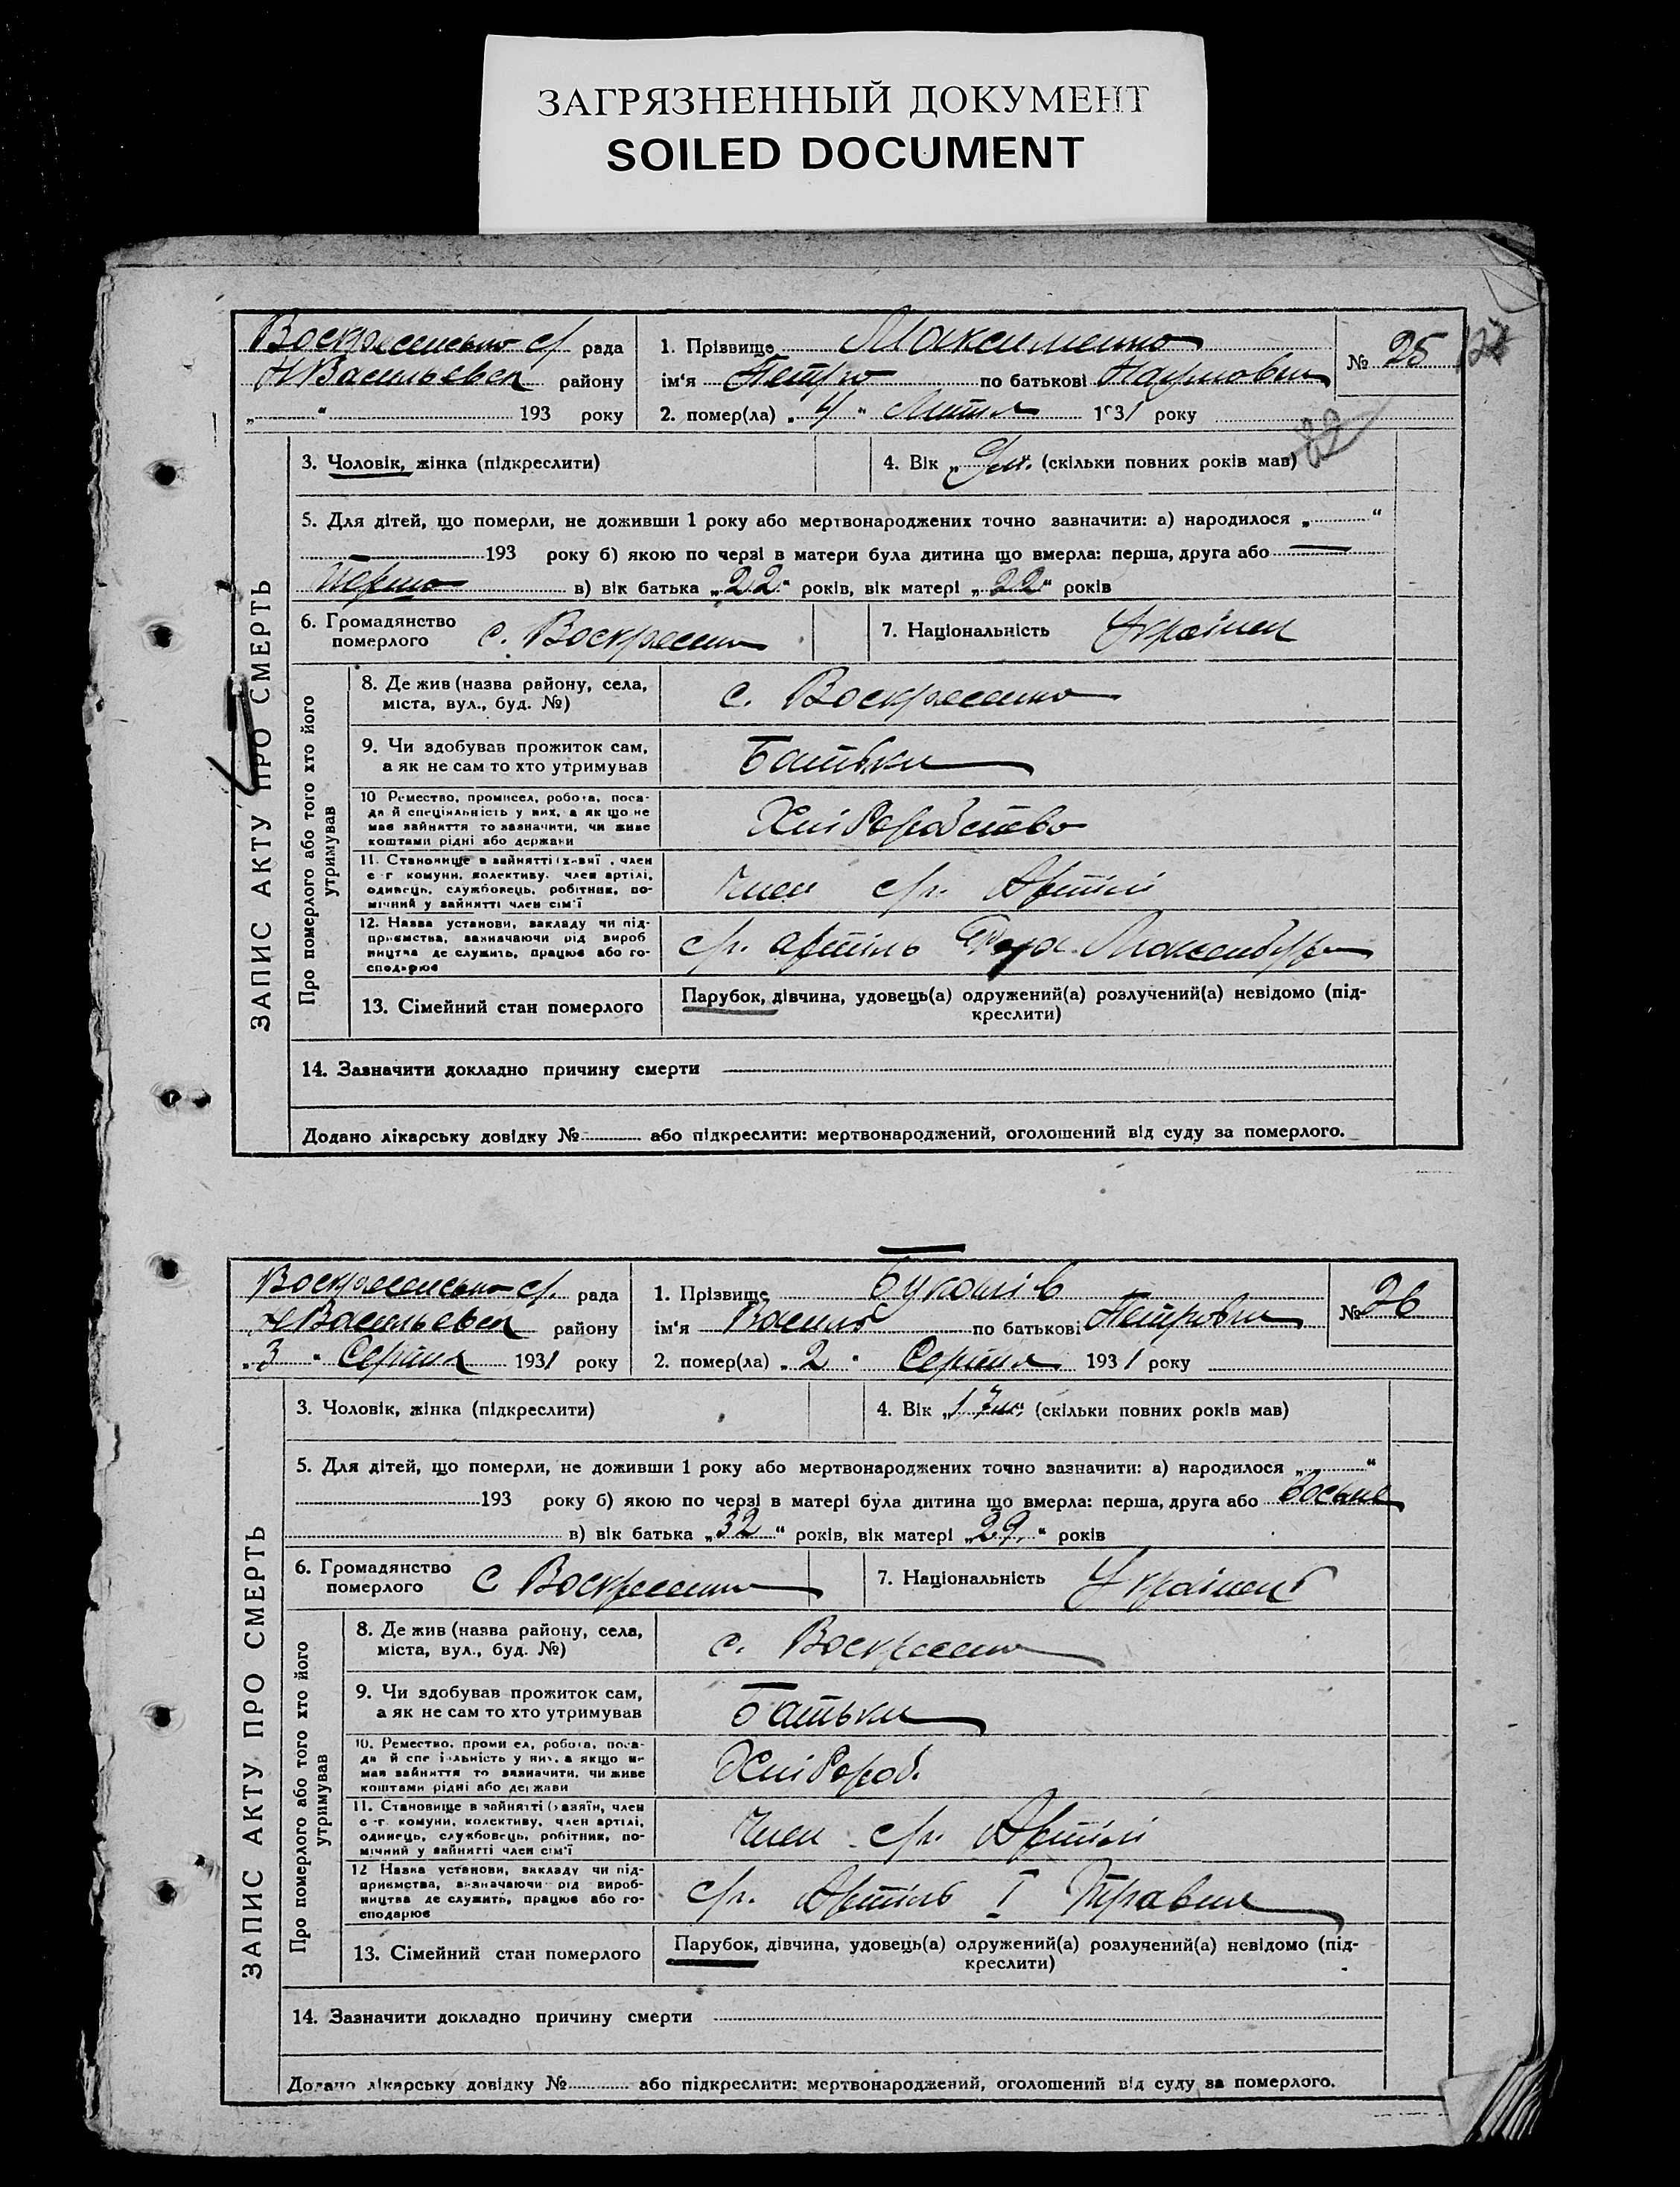 ЗАГРЯЗНЕННЫЙ ДОКУМЕНТ
SOILED DOCUMENT
Воскресенсько с/ рада 1. Прізвище Максименко № 25
Н Васильевск району ім'я Петро по батькові Наумович
„ “ 193 року 2. помер(ла) „ 4 “ Липня 1931 року
3. Чоловік, жінка (підкреслити) 4. Вік „ (скільки повних років мав)
5. Для дітей, що померли, не доживши 1 року або мертвонароджених точно зазначити: а) народилося „ “
193 року б) якою по черзі в матери була дитина що вмерла: перша, друга або
Перша в) вік батька „22“ років, вік матері „22“ років
6. Громадянство померлого с. Воскресенка 7. Національність Українец
8. Де жив (назва району, села, міста, вул., буд. №) с. Воскресенка
9. Чи здобував прожиток сам, а як не сам то хто утримував Батьки
10 Ремество, промисел, робота, посада й спеціяльність у них, а як що не має зайняття то зазначити, чи живе коштами рідні або держави Хліборобство
11. Становище в зайнятті (хазяї , член с-г комуни, колективу, член артілі, одинець, службовець, робітник, помічний у зайнятті член сім'ї Член с/г. Артілі
12. Назва установи, закладу чи підприємства, зазначаючи рід виробництва де служить, працює або господарює с/г. артіль Роза Люксенбург
13. Сімейний стан померлого Парубок, дівчина, удовець(а) одружений(а) розлучений(а) невідомо (підкреслити)
14. Зазначити докладно причину смерти
Додано лікарську довідку № або підкреслити: мертвонароджений, оголошений від суду за померлого.
ЗАПИС АКТУ ПРО СМЕРТЬ
Про померлого або того хто його утримував
Воскресенсько с/. рада 1. Прізвище №26
Н Васильевск району ім'я Василь по батькові Петрович
„3 “ Серпня 1931 року 2. помер(ла) „ 2 “ Серпня 1931 року
3. Чоловік, жінка (підкреслити) 4. Вік „ (скільки повних років мав)
5. Для дітей, що померли, не доживши 1 року або мертвонароджених точно зазначити: а) народилося „ “
193 року б) якою по черзі в матері була дитина що вмерла: перша, друга або
в) вік батька „32“ років, вік матері „29“ років
6. Громадянство померлого с Воскресенка 7. Національність Українець
8. Де жив (назва району, села, міста, вул., буд. №) с. Воскресенка
9. Чи здобував прожиток сам, а як не сам то хто утримував Батьки
10. Ремество, проми ел, робота, посада й спе іальність у них, а якщо не має зайняття то зазначити, чи живе коштами рідні або держави Хлібороб.
11. Становище в зайнятті (хазяїн, член с-г. комуни, колективу, член артілі, одинець, службовець, робітник, помічний у зайнятті член сім'ї Член с/г. Артілі
12 Назва установи, закладу чи підприємства, зазначаючи рід виробництва де служить, працює або господарює с/г. Артіль I Травня
13. Сімейний стан померлого Парубок, дівчина, удовець(а) одружений(а) розлучений(а) невідомо (підкреслити)
14. Зазначити докладно причину смерти
Додано лікарську довідку № або підкреслити: мертвонароджений, оголошений від суду за померлого.
ЗАПИС АКТУ ПРО СМЕРТЬ
Про померлого або того хто його утримував